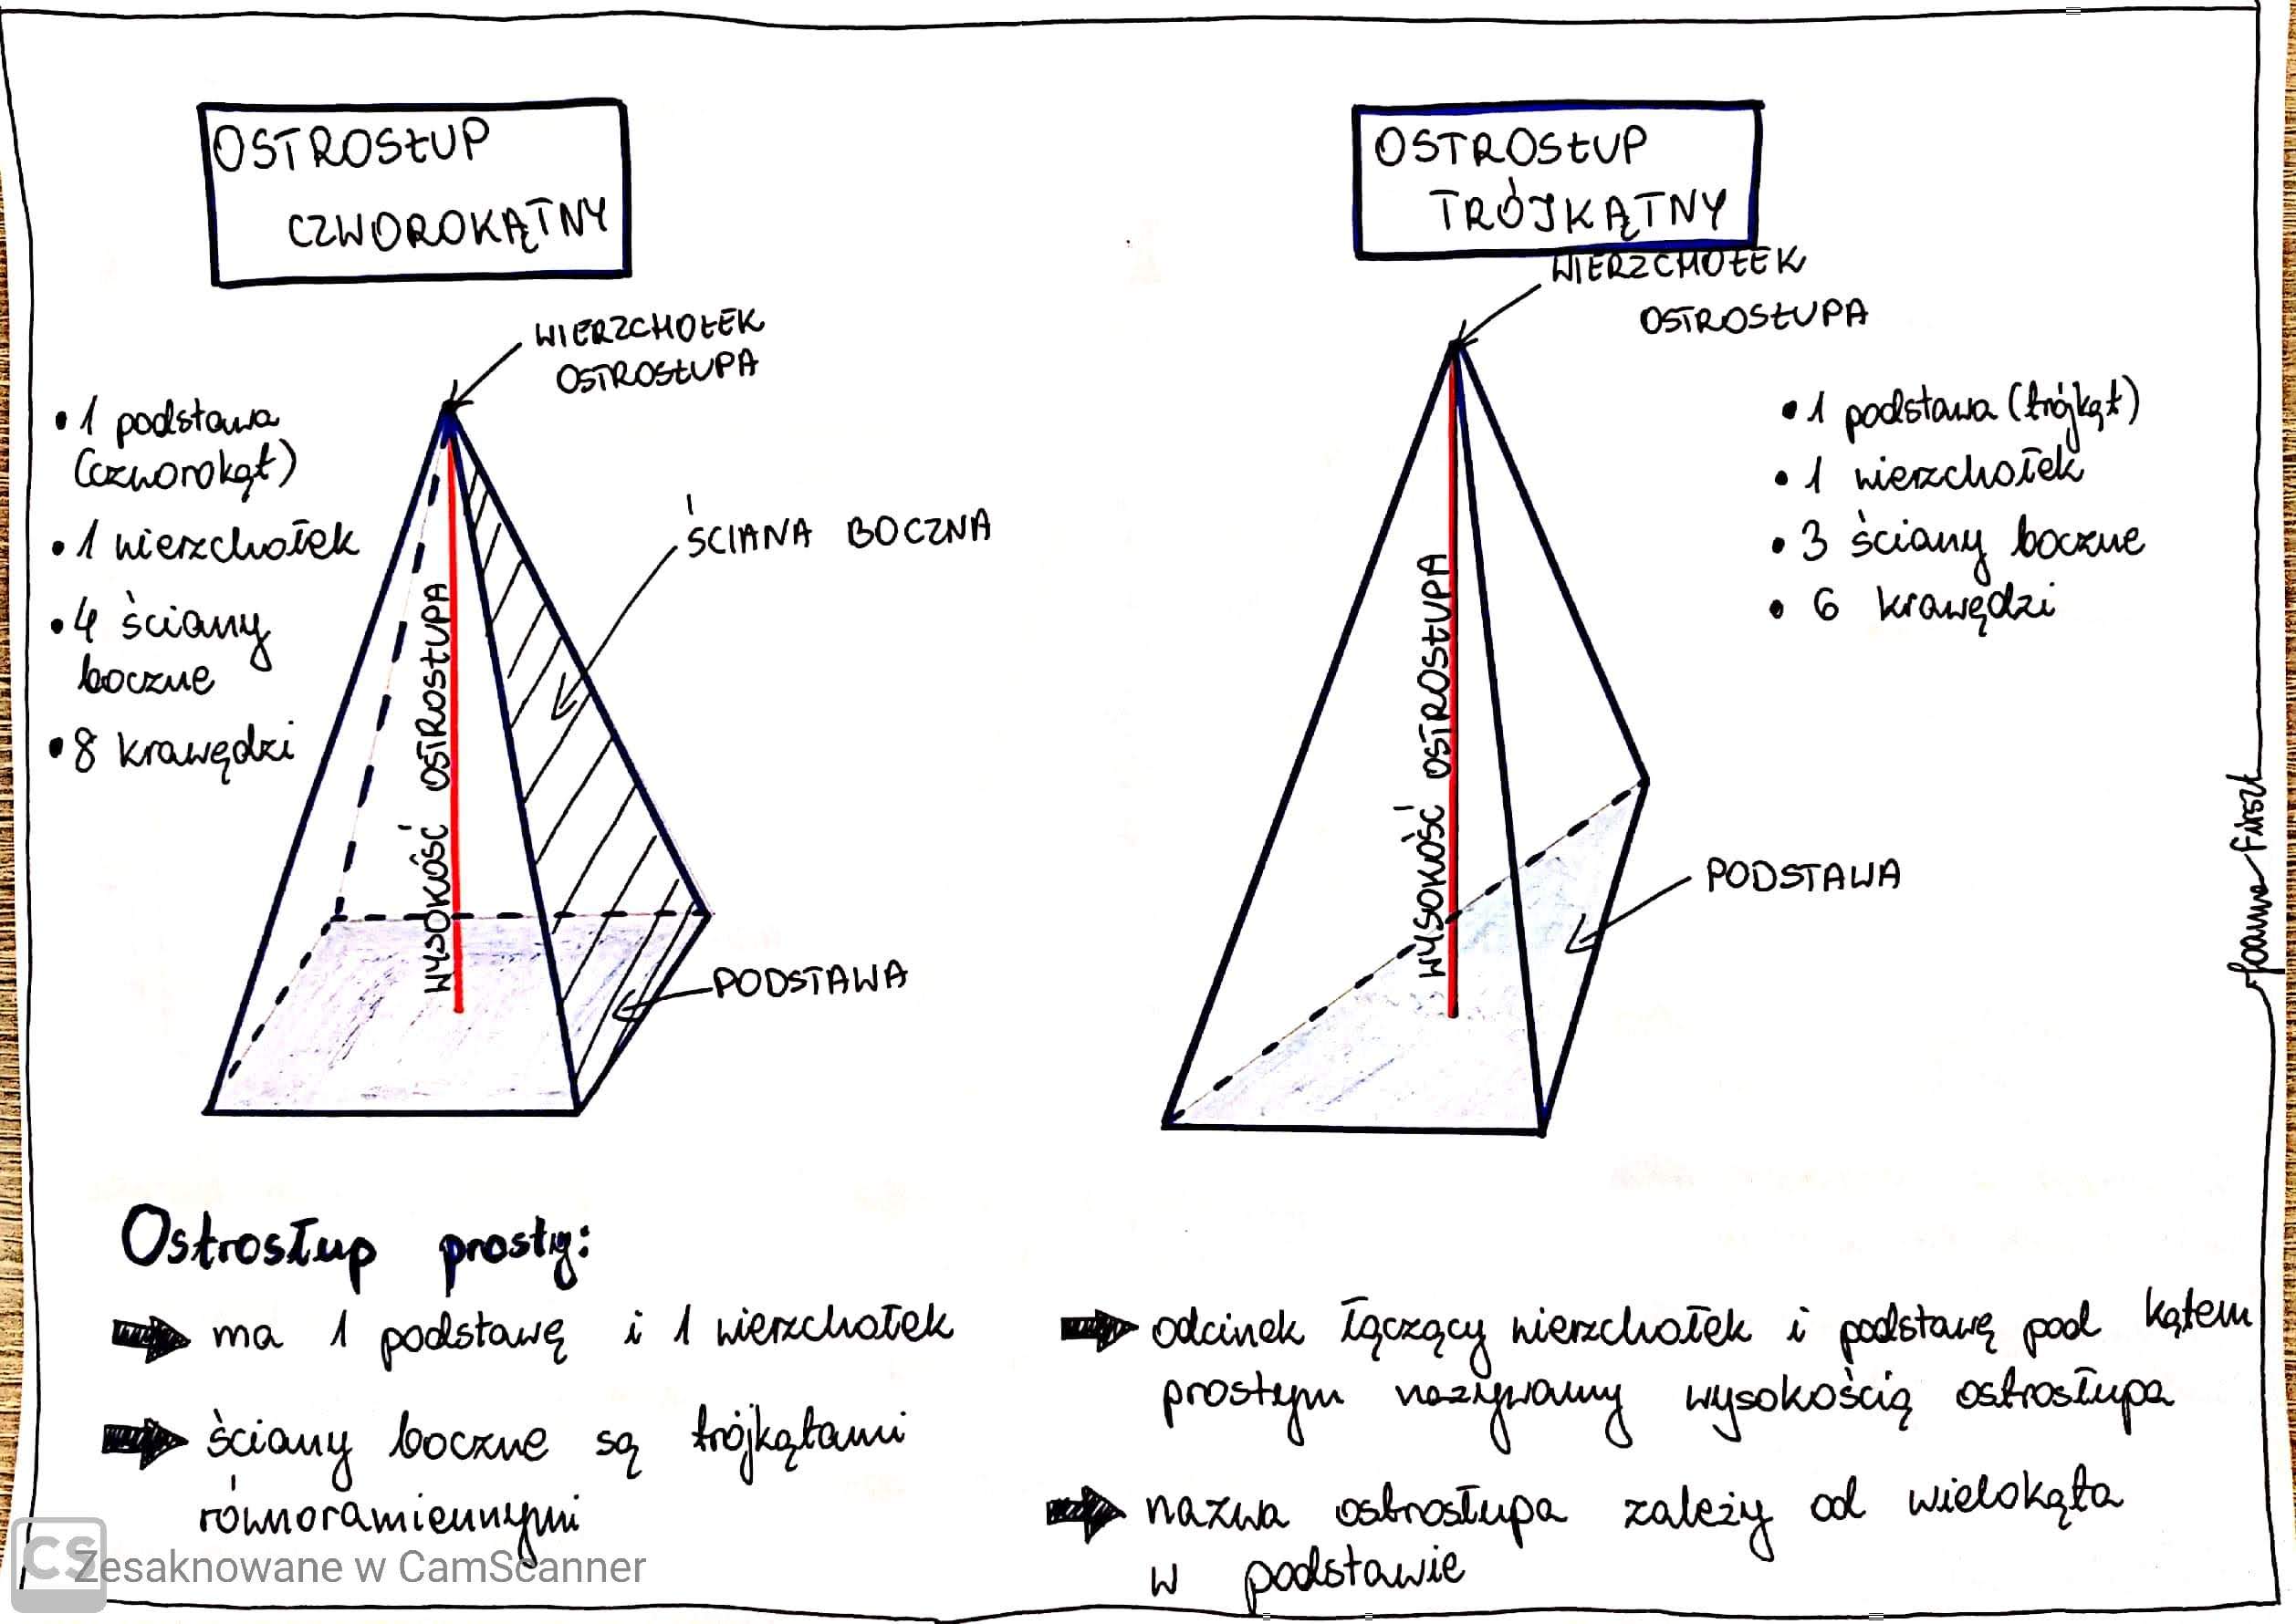 OSTROSŁUP
CZWOROKĄTNY
WIERZCHOŁEK
OSTROSŁUPA
• 1 podstawa
(czworokąt)
• 1 wierzchołek
• 4 ściany
boczne
• 8 krawędzi
ŚCIANA BOCZNA
WYSOKOŚĆ OSTROSŁUPA
PODSTAWA
OSTROSŁUP
TRÓJKĄTNY
WIERZCHOŁEK
OSTROSŁUPA
• 1 podstawa (trójkąt)
• 1 wierzchołek
• 3 ściany boczne
• 6 krawędzi
WYSOKOŚĆ OSTROSŁUPA
PODSTAWA
Joanna Firszt
Ostrosłup prosty:
ma 1 podstawę i 1 wierzchołek
ściany boczne są trójkątami
równoramiennymi
odcinek łączący wierzchołek i podstawę pod kątem
prostym nazywamy wysokością ostrosłupa
nazwa ostrosłupa zależy od wielokąta
w podstawie
CS Zesaknowane w CamScanner